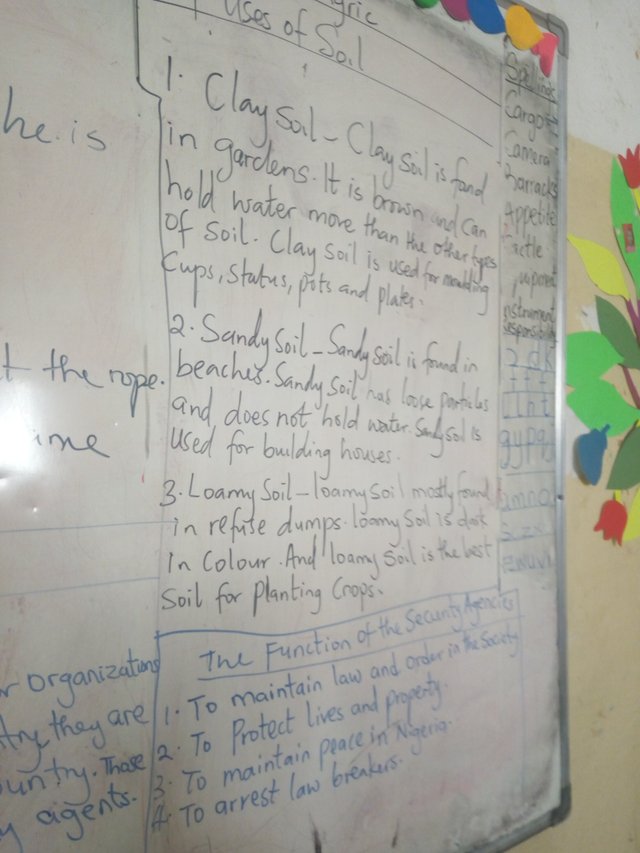 Uses of Soil
1. Clay Soil - Clay Soil is found
in gardens. It is brown and can
hold water more than the other types
of soil. Clay soil is used for moulding
Cups, status, pots and plates.
2. Sandy Soil - Sandy Soil is found in
beaches. Sandy Soil has loose particles
and does not hold water. Sandy soil is
used for building houses.
3. Loamy Soil - loamy soil mostly found
in refuse dumps. loamy Soil is dark
in Colour. And loamy Soil is the best
Soil for Planting Crops.
The Function of the Security Agencies
1. To maintain law and order in the Society
2. To Protect lives and property.
3. To maintain peace in Nigeria.
4. To arrest law breakers.
he is
the rope.
organizations
they are
Those
agents.
Spellings
Camera
Barracks
Appetite
responsibility